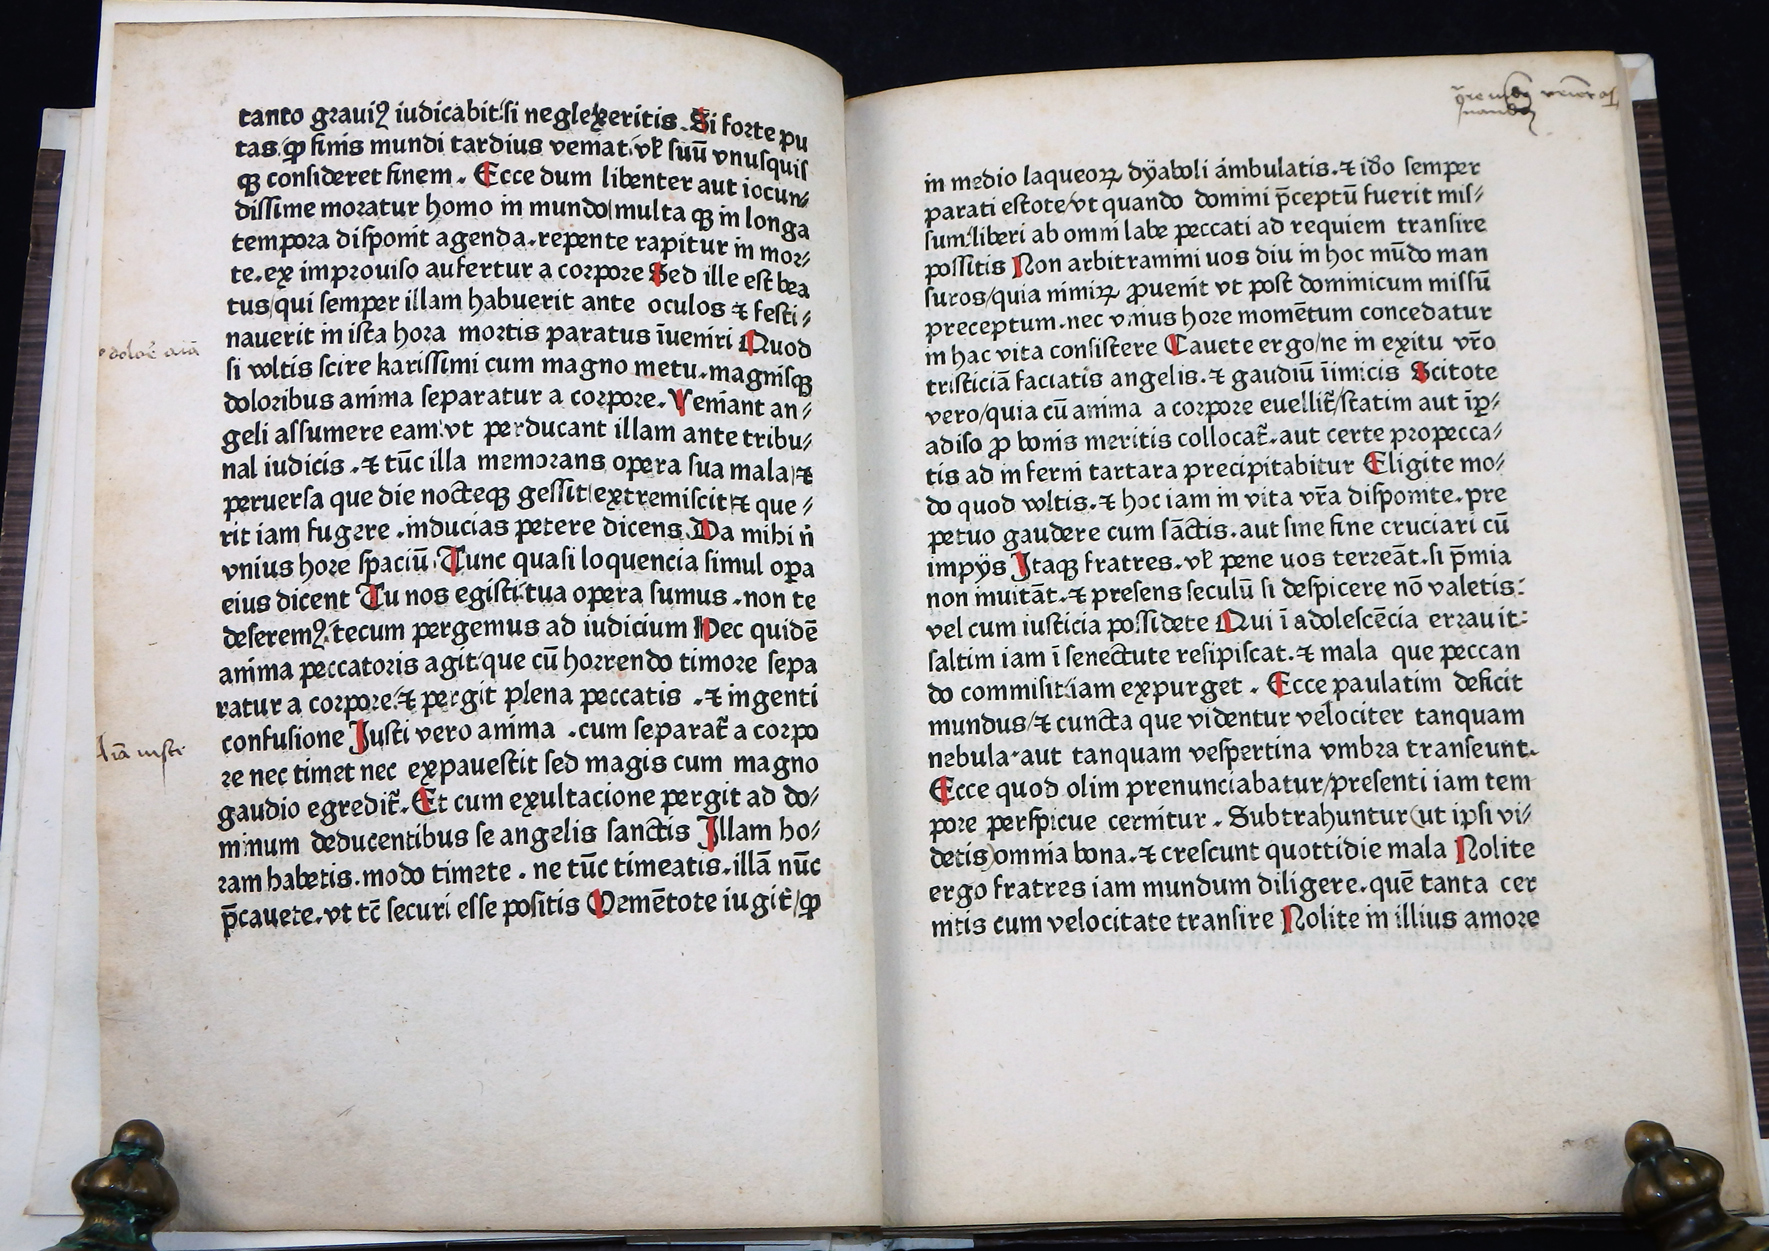 tanto graui⁹ iudicabit:si neglexeritis. Si forte pu
tas.ꝙ finis mundi tardius veniat.vł suū vnusquis
qꝫ consideret finem. Ecce dum libenter aut iocun⸗
dissime moratur homo in mundo/multa qꝫ in longa
tempora disponit agenda.repente rapitur in mor⸗
te.ex improuiso aufertur a corpore Sed ille est bea
tus/qui semper illam habuerit ante oculos ⁊ festi⸗
nauerit in ista hora mortis paratus īueniri Quod
si voltis scire karissimi cum magno metu.magnisqꝫ
doloribus anima separatur a corpore. Veniant an⸗
geli assumere eam:vt perducant illam ante tribu⸗
nal iudicis.⁊ tūc illa memorans opera sua mala/⁊
peruersa que die nocteqꝫ gessit/extremiscit/⁊ que⸗
rit iam fugere.inducias petere dicens. Da mihi ñ
vnius hore spaciū. Tunc quasi loquencia simul oꝑa
eius dicent Tu nos egisti:tua opera sumus.non te
deserem⁹.tecum pergemus ad iudicium Hec quidē
anima peccatoris agit:que cū horrendo timore sepa
ratur a corpore/⁊ pergit plena peccatis.⁊ ingenti
confusione Justi vero anima.cum separat̄ a corpo
re nec timet nec expauescit sed magis cum magno
gaudio egredit̄. Et cum exultacione pergit ad do⸗
minum deducentibus se angelis sanctis Jllam ho⸗
ram habetis.modo timete.ne tūc timeatis.illā nūc
p̄cauete.vt tc̄ securi esse positis Memētote iugit̄/ꝙ
dolore aīa
Aīa iusti
in medio laqueoꝝ dyaboli ambulatis.⁊ iđo semper
parati estote/vt quando domini p̄ceptū fuerit mis⸗
sum:liberi ab omni labe peccati ad requiem transire
possitis Non arbitramini uos diu in hoc mūdo man
suros/quia nimiꝝ ꝓuenit vt post dominicum missū
preceptum.nec vnius hore momētum concedatur
in hac vita consistere Cauete ergo/ne in exitu vr̄o
tristiciā faciatis angelis.⁊ gaudiū īimicis Scitote
vero/quia cū anima a corpore euellit̄/statim aut īꝑ⸗
adiso ꝓ bonis meritis collocat̄.aut certe propecca⸗
tis ad inferni tartara precipitabitur Eligite mo⸗
do quod voltis.⁊ hoc iam in vita vr̄a disponite.pre
petuo gaudere cum sāctis.aut sine fine cruciari cū
impÿs Jtaqꝫ fratres.vł pene uos terreāt.si p̄mia
non inuitāt.⁊ presens seculū si despicere nō valetis:
vel cum iusticia possidete Qui ī adolescēcia errauit:
saltim iam ī senectute resipiscat.⁊ mala que peccan
do commisit:iam expurget. Ecce paulatim deficit
mundus/⁊ cuncta que videntur velociter tanquam
nebula.aut tanquam vespertina vmbra transeunt.
Ecce quod olim prenunciabatur/presenti iam tem
pore perspicue cernitur. Subtrahuntur(ut ipsi vi⸗
detis)omnia bona.⁊ crescunt quottidie mala Nolite
ergo fratres iam mundum diligere.quē tanta cer
nitis cum velocitate transire Nolite in illius amore